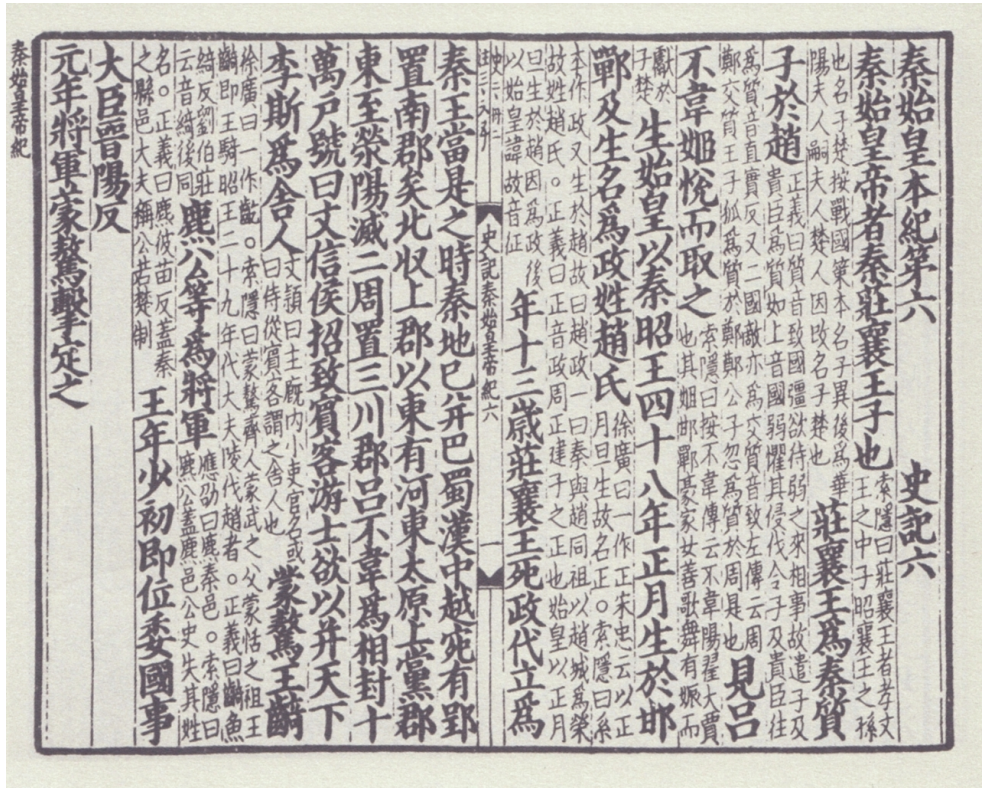 秦始皇本紀第六　史記六
秦始皇帝者秦莊襄王子也索隱曰莊襄王者孝文王之中子昭襄王之孫
也名子楚按戰國策本名子異後爲華陽夫人嗣夫人楚人因改名子楚也莊襄王爲秦質
子於趙正義曰質音致國彊欲待弱之來相事故遣子及貴臣爲質如上音國弱懼其侵伐令子及貴臣往
爲質音直實反又二國敵亦爲交質音致左傳云周鄭交質王子狐爲質於鄭鄭公子忽爲質於周是也見呂
不韋姬悅而取之索隱曰按不韋傳云不韋陽翟大賈也其姬邯鄲豪家女善歌舞有娠而
獻於子楚生始皇以秦昭王四十八年正月生於邯
鄲及生名爲政姓趙氏徐廣曰一作正宋忠云以正月旦生故名正。索隱曰系
本作政又生於趙故曰趙政一曰秦與趙同祖以趙城爲榮故姓趙氏。正義曰正音政周正建子之正也始皇以正月
曰生於趙因爲政後以始皇諱故音征年十三歲莊襄王死政代立爲
史記秦始皇帝紀六
一
秦王當是之時秦地已并巴蜀漢中越宛有郢
置南郡矣北收上郡以東有河東太原上黨郡
東至滎陽滅二周置三川郡呂不韋爲相封十
萬戶號曰文信侯招致賓客游士欲以并天下
李斯爲舍人文穎曰主廄內小吏官名或曰侍從賓客謂之舍人也蒙驁王齮
徐廣曰一作齕。索隱曰蒙驁齊人蒙武之父蒙恬之祖王齮即王騎昭王二十九年代大夫陵代趙者。正義曰齮魚
綺反劉伯莊云音綺後同麃公等爲將軍應劭曰麃秦邑。索隱曰麃公蓋麃邑公史失其姓
名。正義曰麃彼苗反蓋秦之縣邑大夫稱公若楚制王年少初即位委國事
大臣晉陽反
元年將軍蒙驁擊定之
秦始皇帝紀